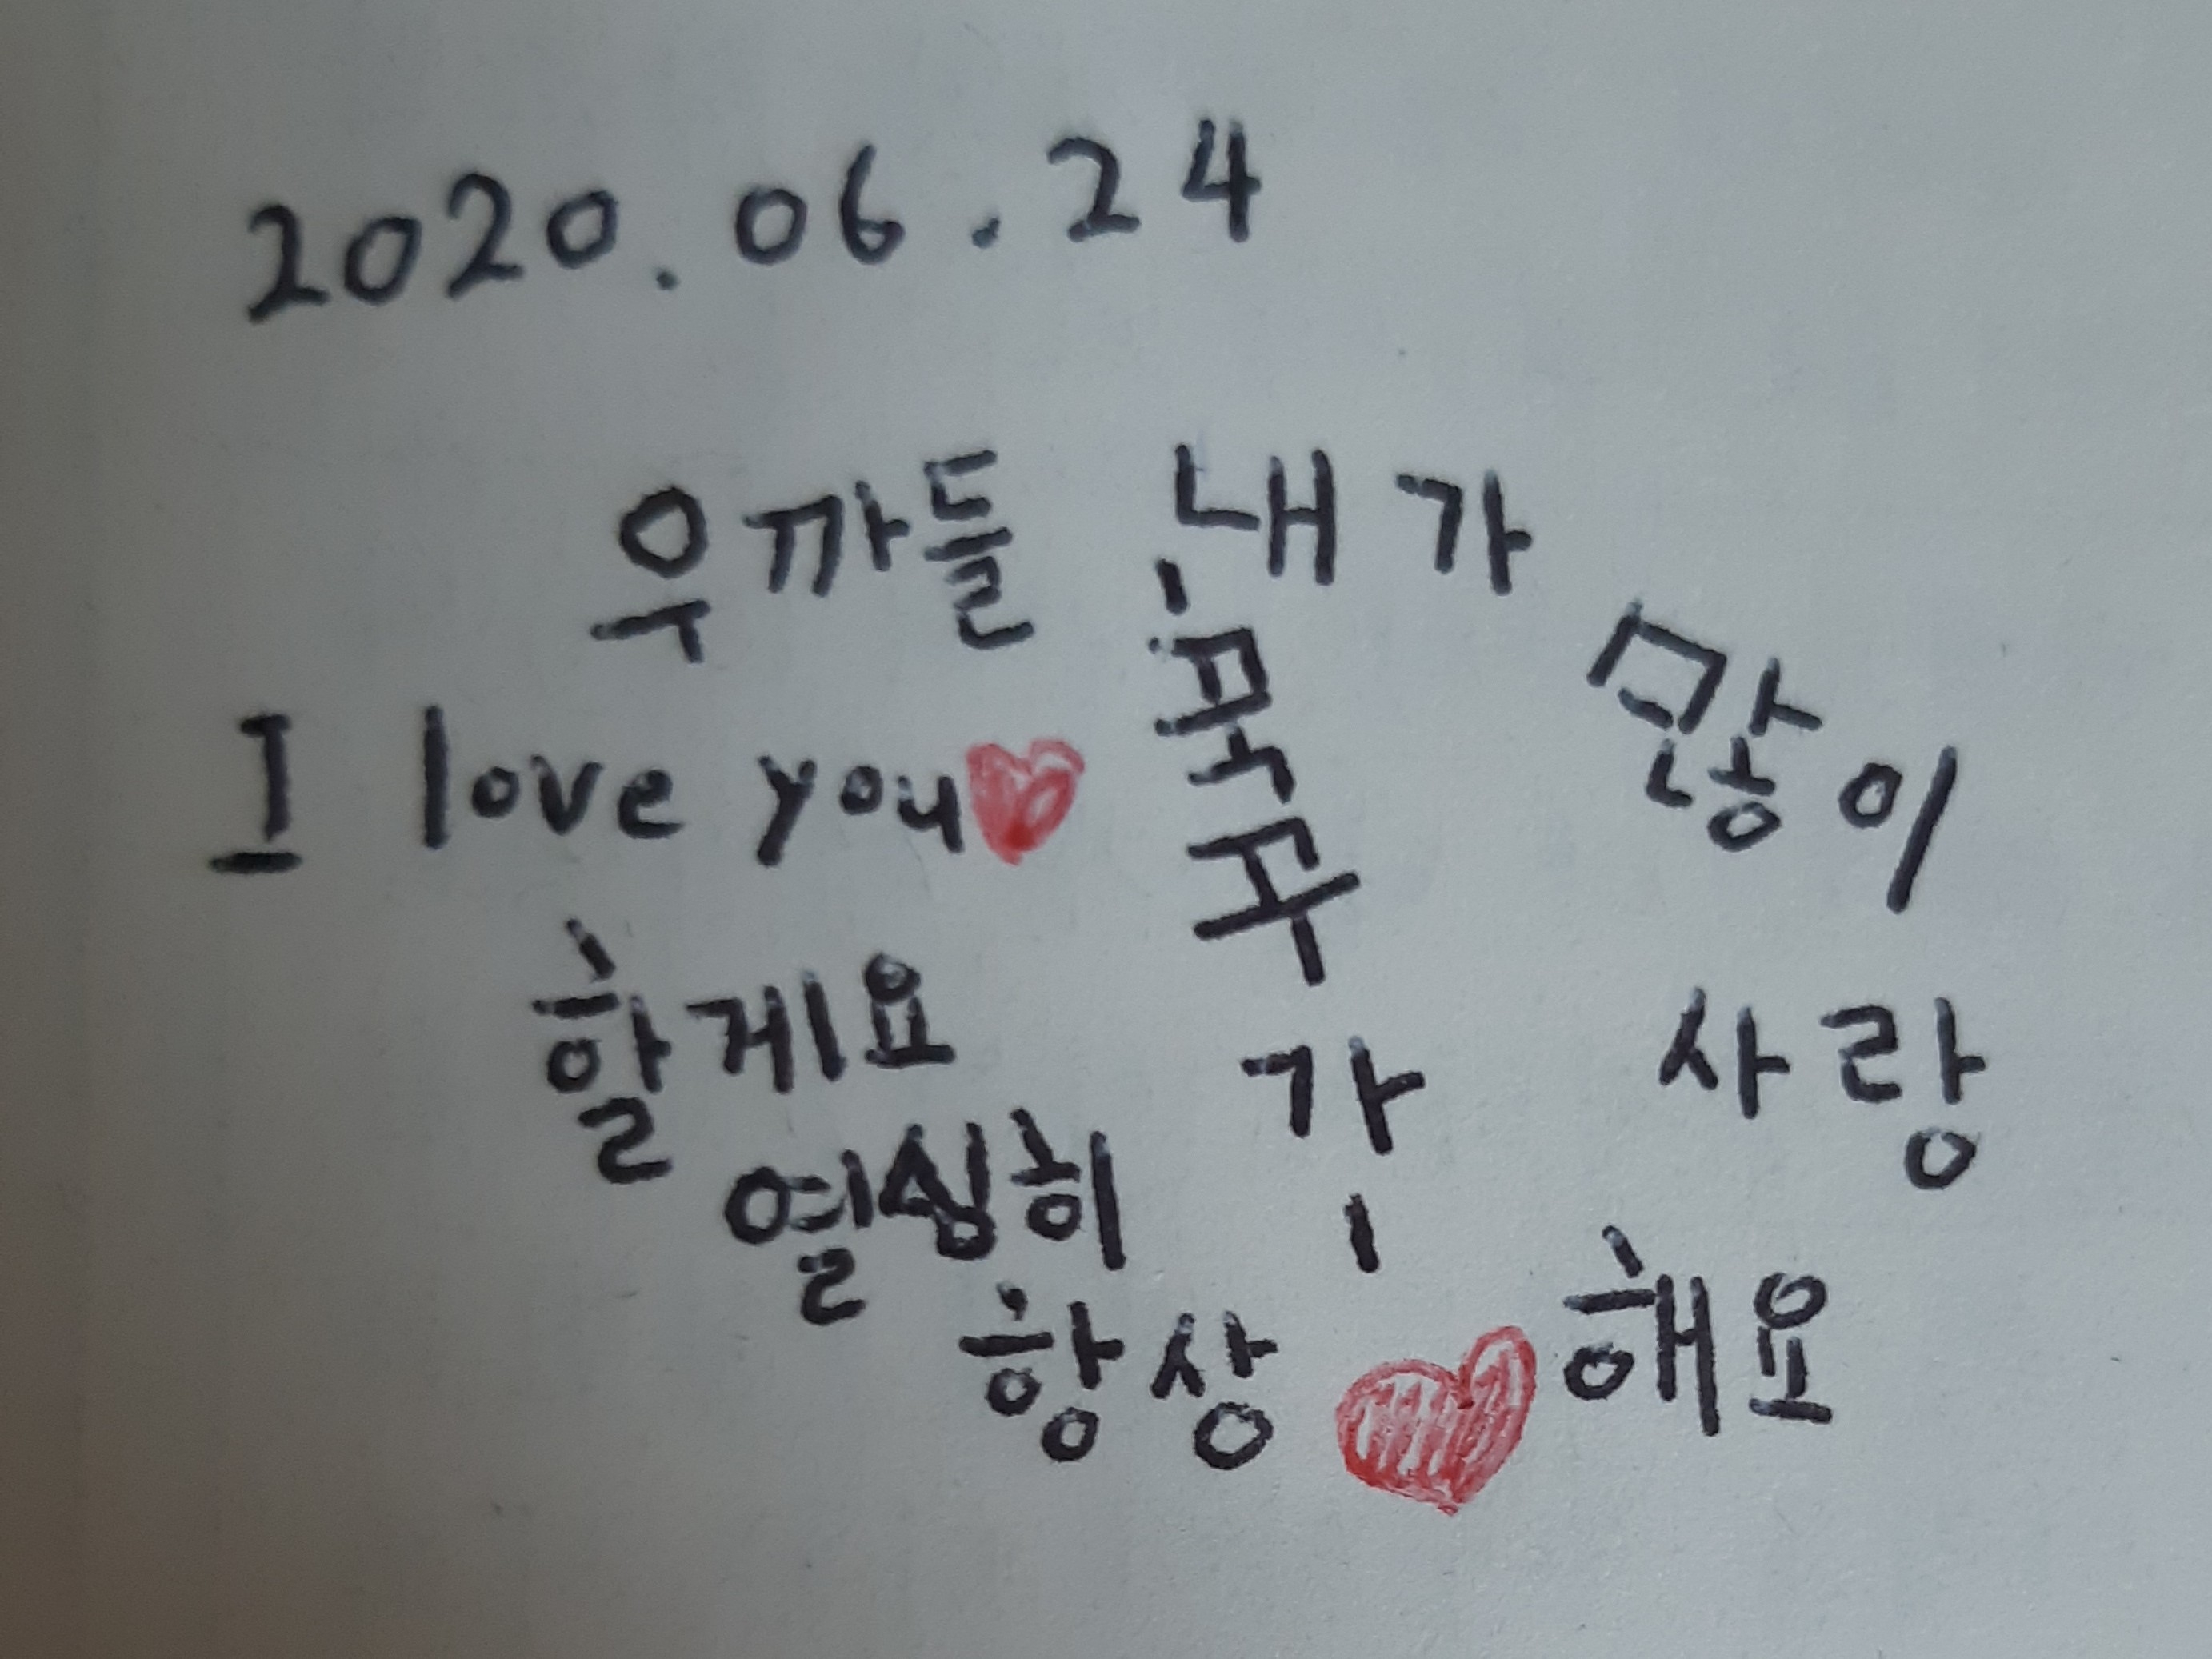 2020.06.24
우까들 내가
많이
사랑
해요
I love you
할게요
열심히
항상